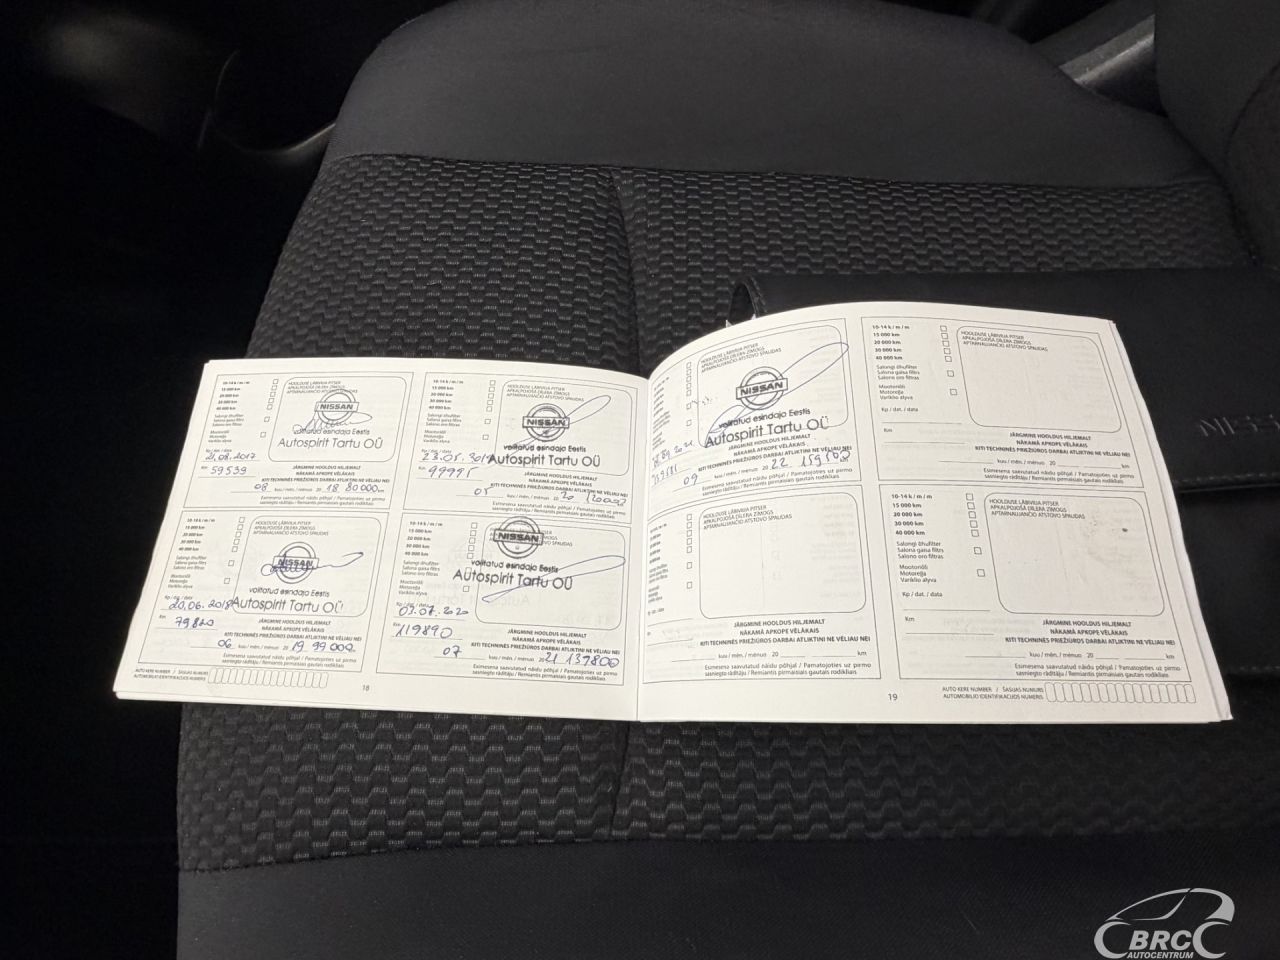 10-14 k / m / m
15 000 km
20 000 km
30 000 km
40 000 km
HOOLDUSE LÄBIVIIJA PITSER
APKALPOJOŠĀ DĪLERA ZĪMOGS
APTARNAUJANČIO ATSTOVO SPAUDAS
Salongi õhufilter
Salona gaisa filtrs
Salono oro filtras
Mootoriõli
Motoreļļa
Variklio alyva
NISSAN
volitatud esindaja Eestis
Autospirit Tartu OÜ
Kp./dat. / data
21.08.2017
Km 59539
JÄRGMINE HOOLDUS HILJEMALT
NĀKAMĀ APKOPE VĒLĀKAIS
KITI TECHNINĖS PRIEŽIŪROS DARBAI ATLIKTINI NE VĖLIAU NEI
08 kuu / mēn. / mėnuo 20 18 80000 km
Esimesena saavutatud näidu põhjal / Pamatojoties uz pirmo
sasniegto rādītāju / Remiantis pirmaisiais gautais rodikliais
10-14 k / m / m
15 000 km
20 000 km
30 000 km
40 000 km
HOOLDUSE LÄBIVIIJA PITSER
APKALPOJOŠĀ DĪLERA ZĪMOGS
APTARNAUJANČIO ATSTOVO SPAUDAS
Salongi õhufilter
Salona gaisa filtrs
Salono oro filtras
Mootoriõli
Motoreļļa
Variklio alyva
NISSAN
volitatud esindaja Eestis
Autospirit Tartu OÜ
Kp. / dat. / data
23.05.2019
Km 99995
JÄRGMINE HOOLDUS HILJEMALT
NĀKAMĀ APKOPE VĒLĀKAIS
KITI TECHNINĖS PRIEŽIŪROS DARBAI ATLIKTINI NE VĖLIAU NEI
05 kuu / mēn. / mėnuo 20 20
Esimesena saavutatud näidu põhjal / Pamatojoties uz pirmo
sasniegto rādītāju / Remiantis pirmaisiais gautais rodikliais
10-14 k / m / m
15 000 km
20 000 km
30 000 km
40 000 km
HOOLDUSE LÄBIVIIJA PITSER
APKALPOJOŠĀ DĪLERA ZĪMOGS
APTARNAUJANČIO ATSTOVO SPAUDAS
Salongi õhufilter
Salona gaisa filtrs
Salono oro filtras
Mootoriõli
Motoreļļa
Variklio alyva
NISSAN
volitatud esindaja Eestis
Autospirit Tartu OÜ
Kp. / dat. / data
20.06.2018
Km 79820
JÄRGMINE HOOLDUS HILJEMALT
NĀKAMĀ APKOPE VĒLĀKAIS
KITI TECHNINĖS PRIEŽIŪROS DARBAI ATLIKTINI NE VĖLIAU NEI
06 kuu / mēn. / mėnuo 20 19 99000
Esimesena saavutatud näidu põhjal / Pamatojoties uz pirmo
sasniegto rādītāju / Remiantis pirmaisiais gautais rodikliais
10-14 k / m / m
15 000 km
20 000 km
30 000 km
40 000 km
APTARNAUJANČIO ATSTOVO SPAUDAS
Salongi õhufilter
Salona gaisa filtrs
Salono oro filtras
Mootoriõli
Motoreļļa
Variklio alyva
NISSAN
volitatud esindaja Eestis
Autospirit Tartu OÜ
Kp. / dat. / data
03.07.2020
Km 119890
JÄRGMINE HOOLDUS HILJEMALT
NĀKAMĀ APKOPE VĒLĀKAIS
KITI TECHNINĖS PRIEŽIŪROS DARBAI ATLIKTINI NE VĖLIAU NEI
07 kuu / mēn. / mėnuo 20 21 139800
Esimesena saavutatud näidu põhjal / Pamatojoties uz pirmo
sasniegto rādītāju / Remiantis pirmaisiais gautais rodikliais
AUTO KERE NUMBER / ŠASIJAS NUMURS
AUTOMOBILIO IDENTIFIKACIJOS NUMERIS
18
HOOLDUSE LÄBIVIIJA PITSER
APKALPOJOŠĀ DĪLERA ZĪMOGS
APTARNAUJANČIO ATSTOVO SPAUDAS
NISSAN
volitatud esindaja Eestis
Autospirit Tartu OÜ
JÄRGMINE HOOLDUS HILJEMALT
NĀKAMĀ APKOPE VĒLĀKAIS
KITI TECHNINĖS PRIEŽIŪROS DARBAI ATLIKTINI NE VĖLIAU NEI
09 kuu / mēn. / mėnuo 20 22
Esimesena saavutatud näidu põhjal / Pamatojoties uz pirmo
sasniegto rādītāju / Remiantis pirmaisiais gautais rodikliais
10-14 k / m / m
15 000 km
20 000 km
30 000 km
40 000 km
HOOLDUSE LÄBIVIIJA PITSER
APKALPOJOŠĀ DĪLERA ZĪMOGS
APTARNAUJANČIO ATSTOVO SPAUDAS
Salongi õhufilter
Salona gaisa filtrs
Salono oro filtras
Mootoriõli
Motoreļļa
Variklio alyva
Kp / dat. / data
Km
JÄRGMINE HOOLDUS HILJEMALT
NĀKAMĀ APKOPE VĒLĀKAIS
KITI TECHNINĖS PRIEŽIŪROS DARBAI ATLIKTINI NE VĖLIAU NEI
kuu / mēn. / mėnuo 20 km
Esimesena saavutatud näidu põhjal / Pamatojoties uz pirmo
sasniegto rādītāju / Remiantis pirmaisiais gautais rodikliais
HOOLDUSE LÄBIVIIJA PITSER
APKALPOJOŠĀ DĪLERA ZĪMOGS
APTARNAUJANČIO ATSTOVO SPAUDAS
JÄRGMINE HOOLDUS HILJEMALT
NĀKAMĀ APKOPE VĒLĀKAIS
KITI TECHNINĖS PRIEŽIŪROS DARBAI ATLIKTINI NE VĖLIAU NEI
kuu / mēn. / mėnuo 20 km
Esimesena saavutatud näidu põhjal / Pamatojoties uz pirmo
sasniegto rādītāju / Remiantis pirmaisiais gautais rodikliais
10-14 k / m / m
15 000 km
20 000 km
30 000 km
40 000 km
HOOLDUSE LÄBIVIIJA PITSER
APKALPOJOŠĀ DĪLERA ZĪMOGS
APTARNAUJANČIO ATSTOVO SPAUDAS
Salongi õhufilter
Salona gaisa filtrs
Salono oro filtras
Mootoriõli
Motoreļļa
Variklio alyva
Kp. / dat. / data
Km
JÄRGMINE HOOLDUS HILJEMALT
NĀKAMĀ APKOPE VĒLĀKAIS
KITI TECHNINĖS PRIEŽIŪROS DARBAI ATLIKTINI NE VĖLIAU NEI
kuu / mēn. / mėnuo 20 km
Esimesena saavutatud näidu põhjal / Pamatojoties uz pirmo
sasniegto rādītāju / Remiantis pirmaisiais gautais rodikliais
19
AUTO KERE NUMBER / ŠASIJAS NUMURS
AUTOMOBILIO IDENTIFIKACIJOS NUMERIS
BRC
AUTOCENTRUM